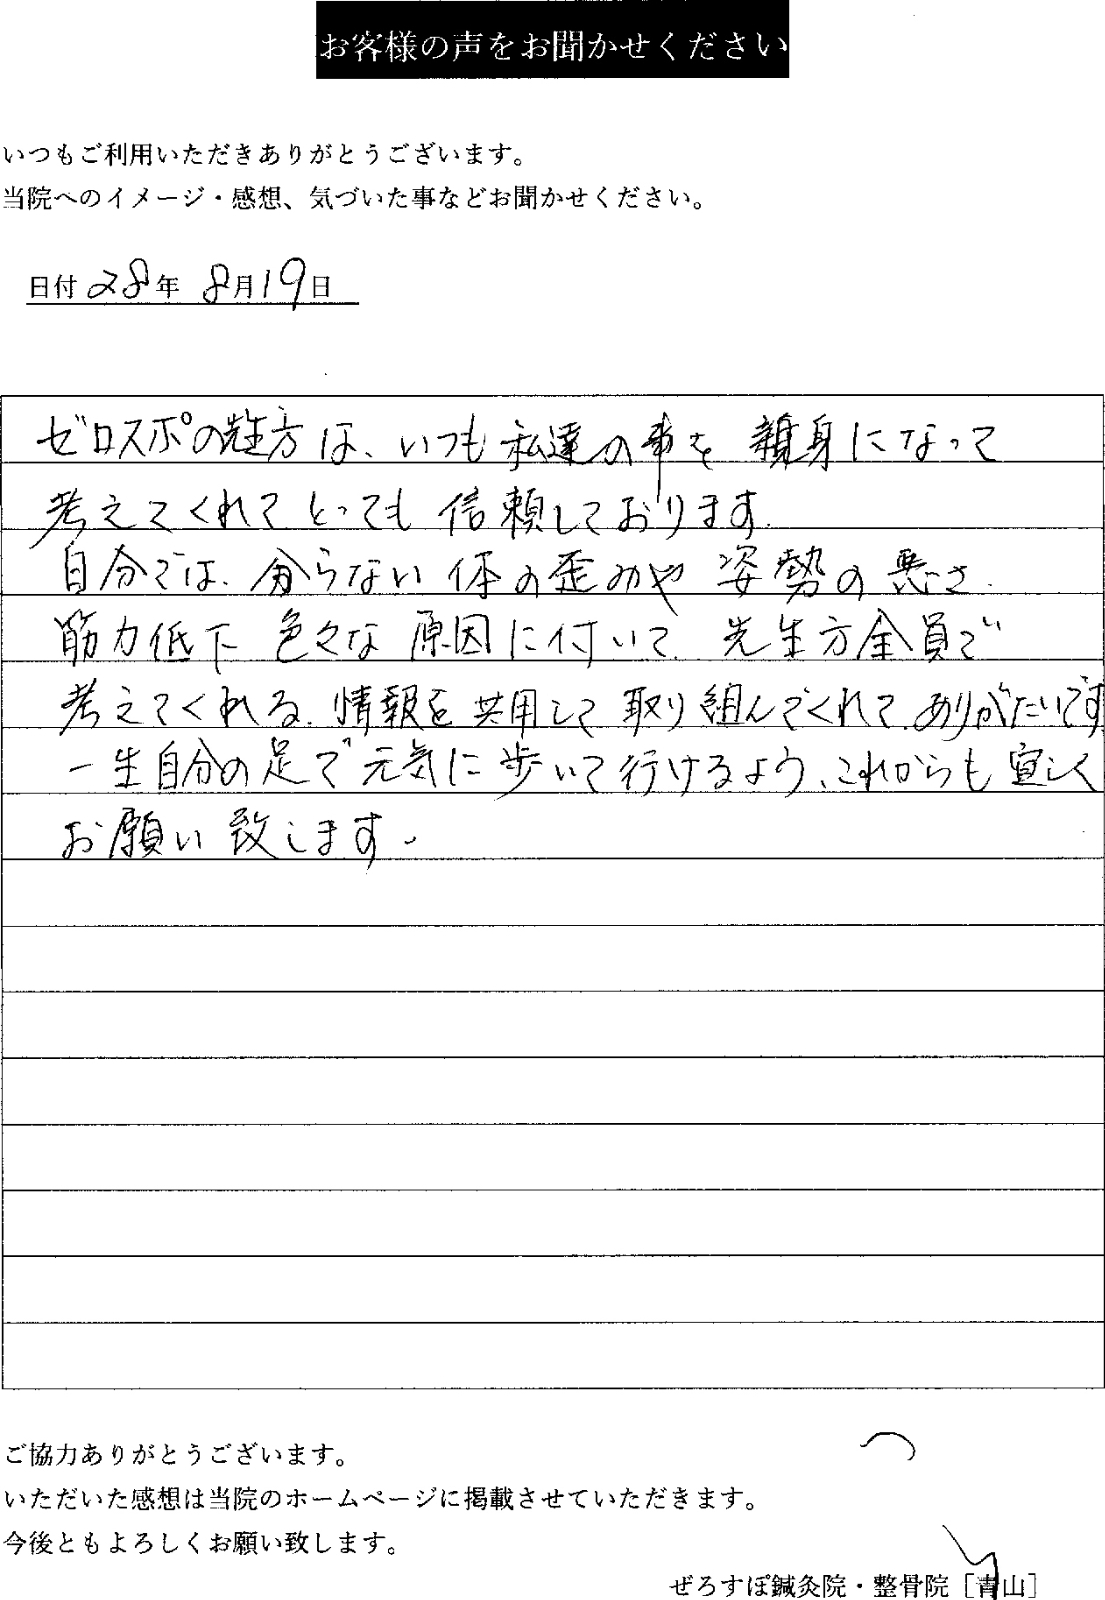 お客様の声をお聞かせください
いつもご利用いただきありがとうございます。
当院へのイメージ・感想、気づいた事などお聞かせください。
日付 28年 8月19日
ゼロスポの先生方は、いつも私達の事を親身になって
考えてくれてとっても信頼しております。
自分では、分らない体の歪みや姿勢の悪さ、
筋力低下 色々な原因に付いて、先生方全員で
考えてくれる。情報を共用して取り組んでくれて、ありがたいです
一生自分の足で元気に歩いて行けるよう、これからも宜しく
お願い致します。
ご協力ありがとうございます。
いただいた感想は当院のホームページに掲載させていただきます。
今後ともよろしくお願い致します。
ぜろすぽ鍼灸院・整骨院［青山］